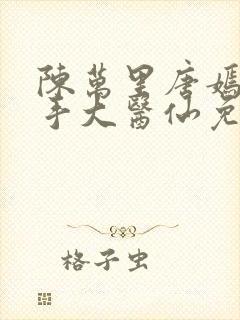 陳萬里唐嫣
手大醫仙免
格子虫